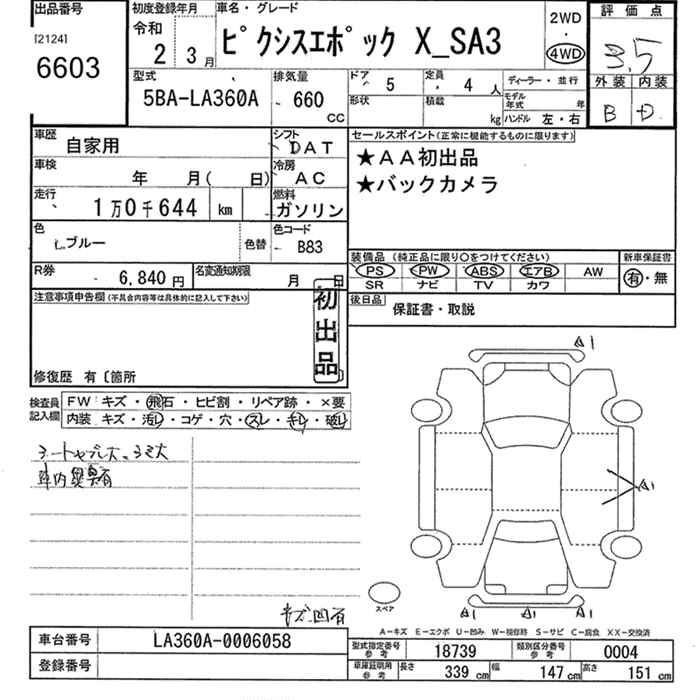 出品番号
[2124]
6603
初度登録年月
令和
2 3月
車名・グレード
ピクシスエポック X_SA3
2WD
・
4WD
評価点
3.5
外装 内装
B D
型式
5BA-LA360A
排気量
660
CC
ドア 5
定員 4人
形状
積載 kg
ディーラー・並行
モデル年式 年
ハンドル 左・右
車歴 自家用
シフト DAT
車検 年 月( 日)
冷房 AC
走行 1万0千644 km
燃料 ガソリン
色 ブルー
色替
色コード B83
R券 6,840円
名変通知期限 月 日
セールスポイント(正常に機能するものに限ります)
★AA初出品
★バックカメラ
装備品(純正品に限り○をつけてください)
新車保証書
PS PW ABS エアB AW
SR ナビ TV カワ
有・無
後日品 保証書・取説
注意事項申告欄(不具合内容等は具体的に記入して下さい)
初出品
修復歴 有〔箇所〕
検査員記入欄
FW キズ・飛石・ヒビ割・リペア跡・×要
内装 キズ・汚レ・コゲ・穴・スレ・キレ・破レ
車内異臭有
キズ凹有
A1
A1
A1 A1 A1
スペア
A-キズ E-エクボ U-凹み W-補修跡 S-サビ C-腐食 XX-交換済
車台番号 LA360A-0006058
登録番号
型式指定番号参考 18739
類別区分番号参考 0004
車庫証明用参考 長さ 339cm 幅 147cm 高さ 151cm